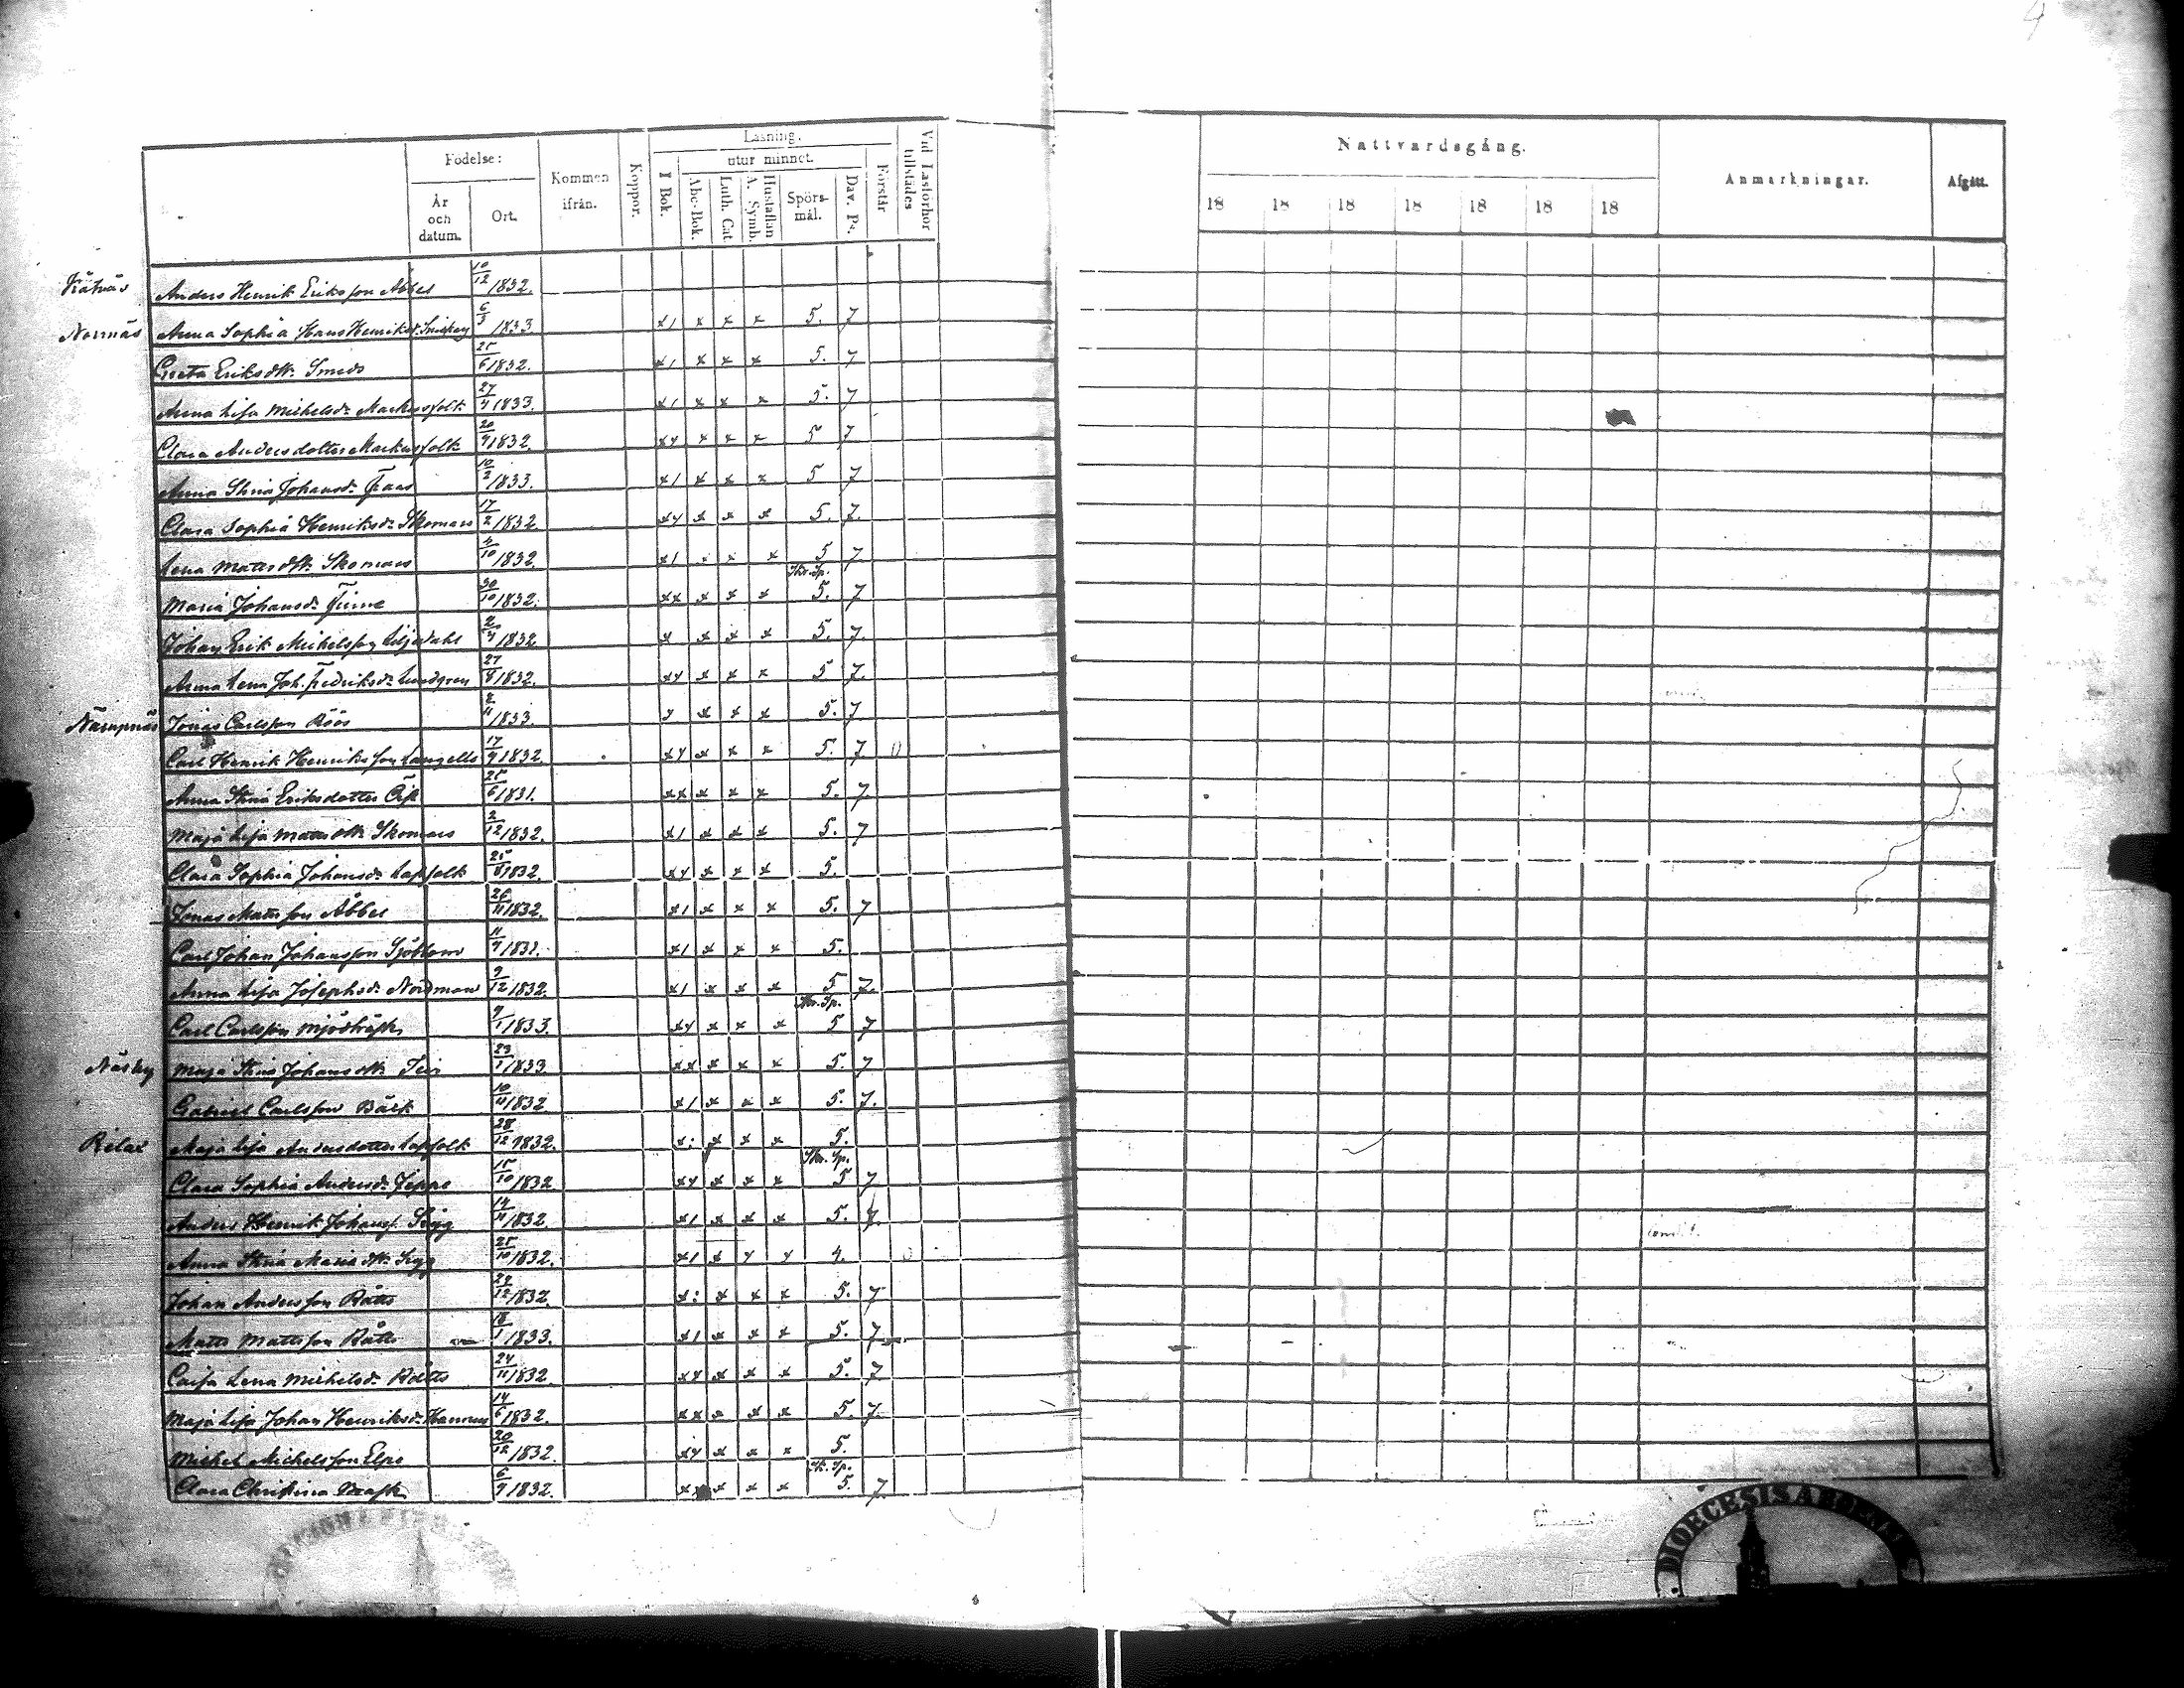 4
Födelse:
År och datum.
Ort.
Kommen ifrån.
Koppor.
Läsning.
I Bok.
utur minnet.
Abc-Bok.
Luth. Cat.
A. Symb.
Hustaflan
Spörsmål.
Dav. Ps.
Förstår
Vid Läsförhör tillstädes
Nattvardsgång.
18 18 18 18 18 18 18
Anmärkningar.
Afgått.
Anders Henrik Eriksson Abbel 10/12 1832.
Norrnäs Anna Sophia Hans Henriksd. 6/3 1833. x1 x x x 5. 7
Greta Eriksdtr. Smeds 25/6 1832. x1 x x x 5. 7
Anna Lisa Michelsd. Markusfolk 27/4 1833. x1 x x x 5. 7
Clara Andersdotter Markusfolk 20/9 1832. xy x x x 5 7
Anna Stina Johansd. Frans 10/2 1833. x1 x x x 5 7
Clara Sophia Henriksd. Skomars 17/2 1832. xy x x x 5. 7.
Lena Mattsdtr. Skomars 1832. x1 x x x 5 7
Maria Johansd. 30/10 1832. xx x x x 5. 7
Johan Erik Michelsson Liljedahl 1832. x x x x 5. 7
Anna Lena Joh. Fredriksd. Lundgren 27/8 1832. xy x x x 5 7.
Nämpnäs Jonas Carlsson Röös 2/11 1833. y x x x 5. 7
Carl Henrik Henriksson Langells 17/9 1832. xy x x x 5. 7
Anna Stina Eriksdotter 25/6 1831. xx x x x 5. 7
Maja Lisa Mattsdtr. Skomars 2/12 1832. x1 x x x 5. 7
Clara Sophia Johansd. Lapfolk 25/8 1832. xy x x x 5.
Jonas Mattsson Abbel 26/11 1832. x1 x x x 5. 7
Carl Johan Johansson Sjöblom 11/9 1832. x1 x x x 5.
Anna Lisa Josephsd. Nordman 9/12 1832. x1 x x x 5 7.
Carl Carlsson Mjödträsk 9/1 1833. xy x x x 5 7
Näsby Maja Stina Johansdtr. Teir 23/1 1833 xx x x x 5. 7
Gabriel Carlsson Bäck 10/11 1832 x1 x x x 5. 7.
Maja Lisa Andersdotter Lapfolk 28/12 1832. x: x x x 5.
Clara Sophia Andersd. Jeppo 15/10 1832 xy x x x 5 7
Anders Henrik Johanss. Krig 14/11 1832. x1 x x x 5. 7.
Anna Stina 25/10 1832. x1 x y y 4.
Johan Andersson Rätts 29/12 1832. x: x x x 5. 7
Matts Mattsson Rätts 18/1 1833. x1 x x x 5. 7
Caisa Lena Michelsd. Rätts 24/11 1832. xy x x x 5. 7
Maja Lisa Johan Henriksd. Hannus 14/6 1832. xx x x x 5. 7.
Michel Michelsson 20/12 1832. xy x x x 5.
Clara Christina 6/9 1832. x x x 5. 7
DIOECESIS ABOENSIS